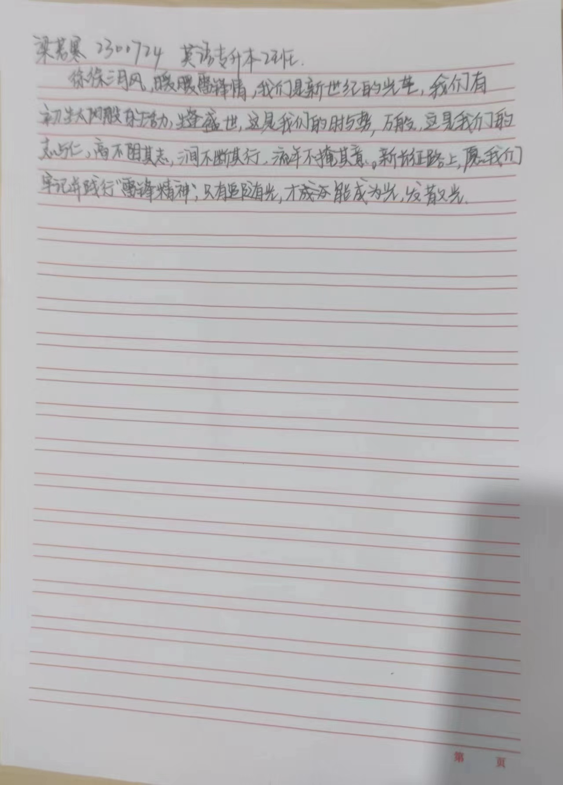 梁茗寒 2300724 英语专升本2班
徐徐三月风,暖暖雷锋情,我们是新世纪的光芒,我们有
初生太阳般的活力,生逢盛世,这是我们的时与势,万般,这是我们的
志与仁,高不阻其志,涧不断其行,流年不掩其意。新的征路上,愿我们
牢记并践行“雷锋精神”,只有追随光,才能成为光,发散光.
第 頁